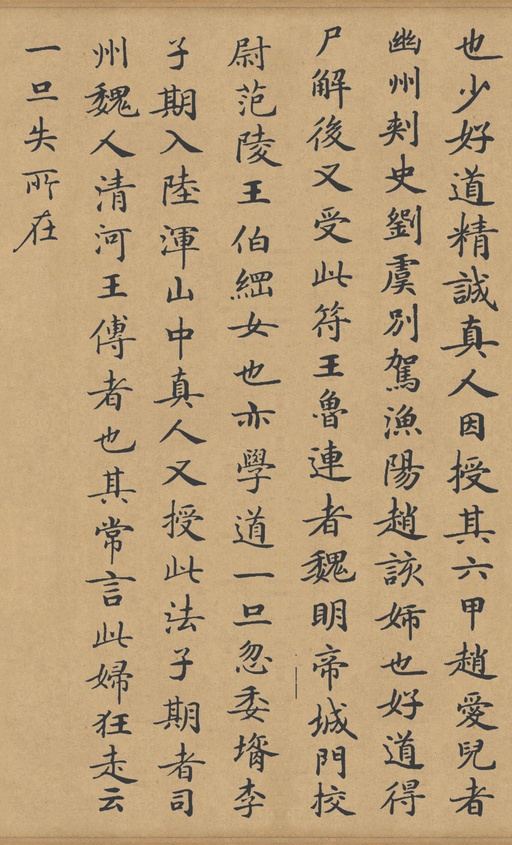 也少好道精誠真人因授其六甲趙愛兒者
幽州刾史劉虞别駕漁陽趙該姊也好道得
尸解後又受此符王魯連者魏明帝城門挍
尉范陵王伯綑女也亦學道一旦忽委壻李
子期入陸渾山中真人又授此法子期者司
州魏人清河王傅者也其常言此婦狂走云
一旦失所在